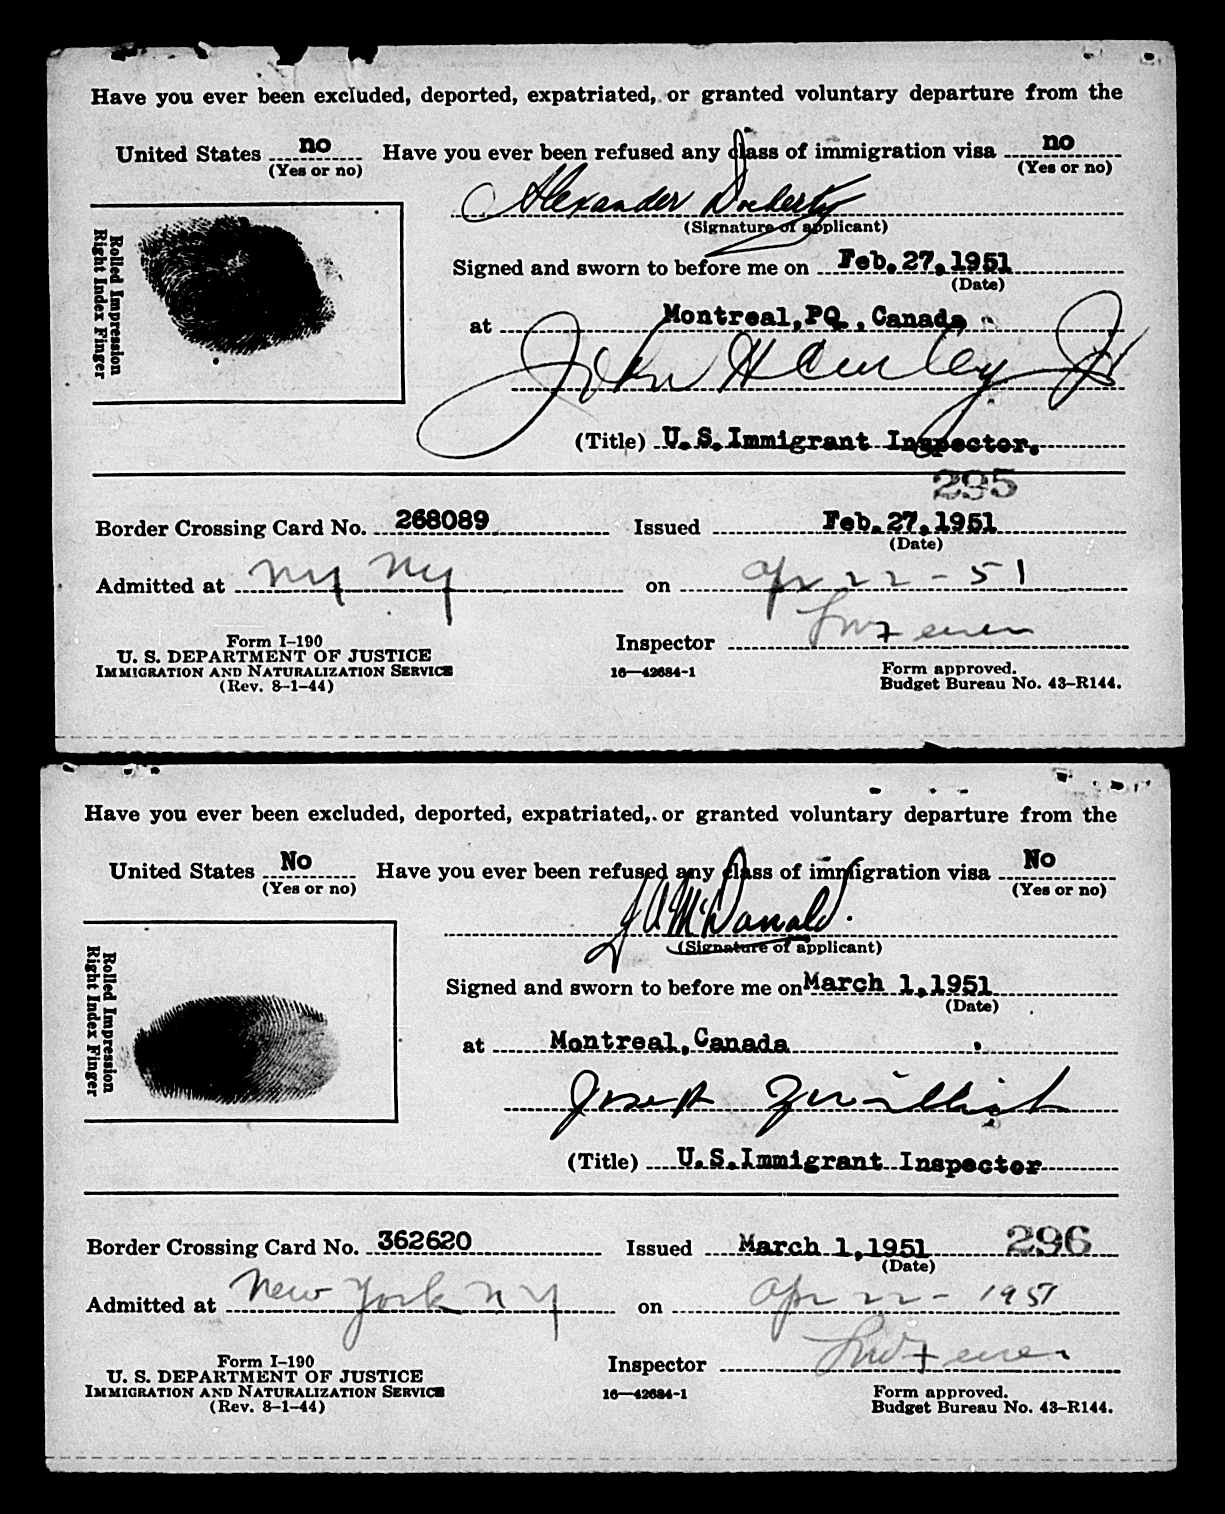 Have you ever been excluded, deported, expatriated, or granted voluntary departure from the
United States no Have you ever been refused any class of immigration visa no
(Yes or no) (Yes or no)
Alexander Docherty
(Signature of applicant)
Rolled Impression
Right Index Finger
Signed and sworn to before me on Feb. 27, 1951
(Date)
at Montreal, PQ., Canada
John Hawley Jr
(Title) U.S. Immigrant Inspector.
295
Border Crossing Card No. 268089 Issued Feb. 27, 1951
(Date)
Admitted at NY NY on Apr 22 - 51
Form I-190 Inspector
U. S. DEPARTMENT OF JUSTICE
IMMIGRATION AND NATURALIZATION SERVICE 16—42684-1 Form approved.
(Rev. 8-1-44) Budget Bureau No. 43-R144.
Have you ever been excluded, deported, expatriated, or granted voluntary departure from the
United States No Have you ever been refused any class of immigration visa No
(Yes or no) (Yes or no)
J A McDonald.
(Signature of applicant)
Rolled Impression
Right Index Finger
Signed and sworn to before me on March 1, 1951
(Date)
at Montreal, Canada
Joseph
(Title) U.S. Immigrant Inspector
Border Crossing Card No. 362620 Issued March 1, 1951 296
(Date)
Admitted at New York NY on Apr 22 - 1951
Form I-190 Inspector
U. S. DEPARTMENT OF JUSTICE
IMMIGRATION AND NATURALIZATION SERVICE 16—42684-1 Form approved.
(Rev. 8-1-44) Budget Bureau No. 43-R144.